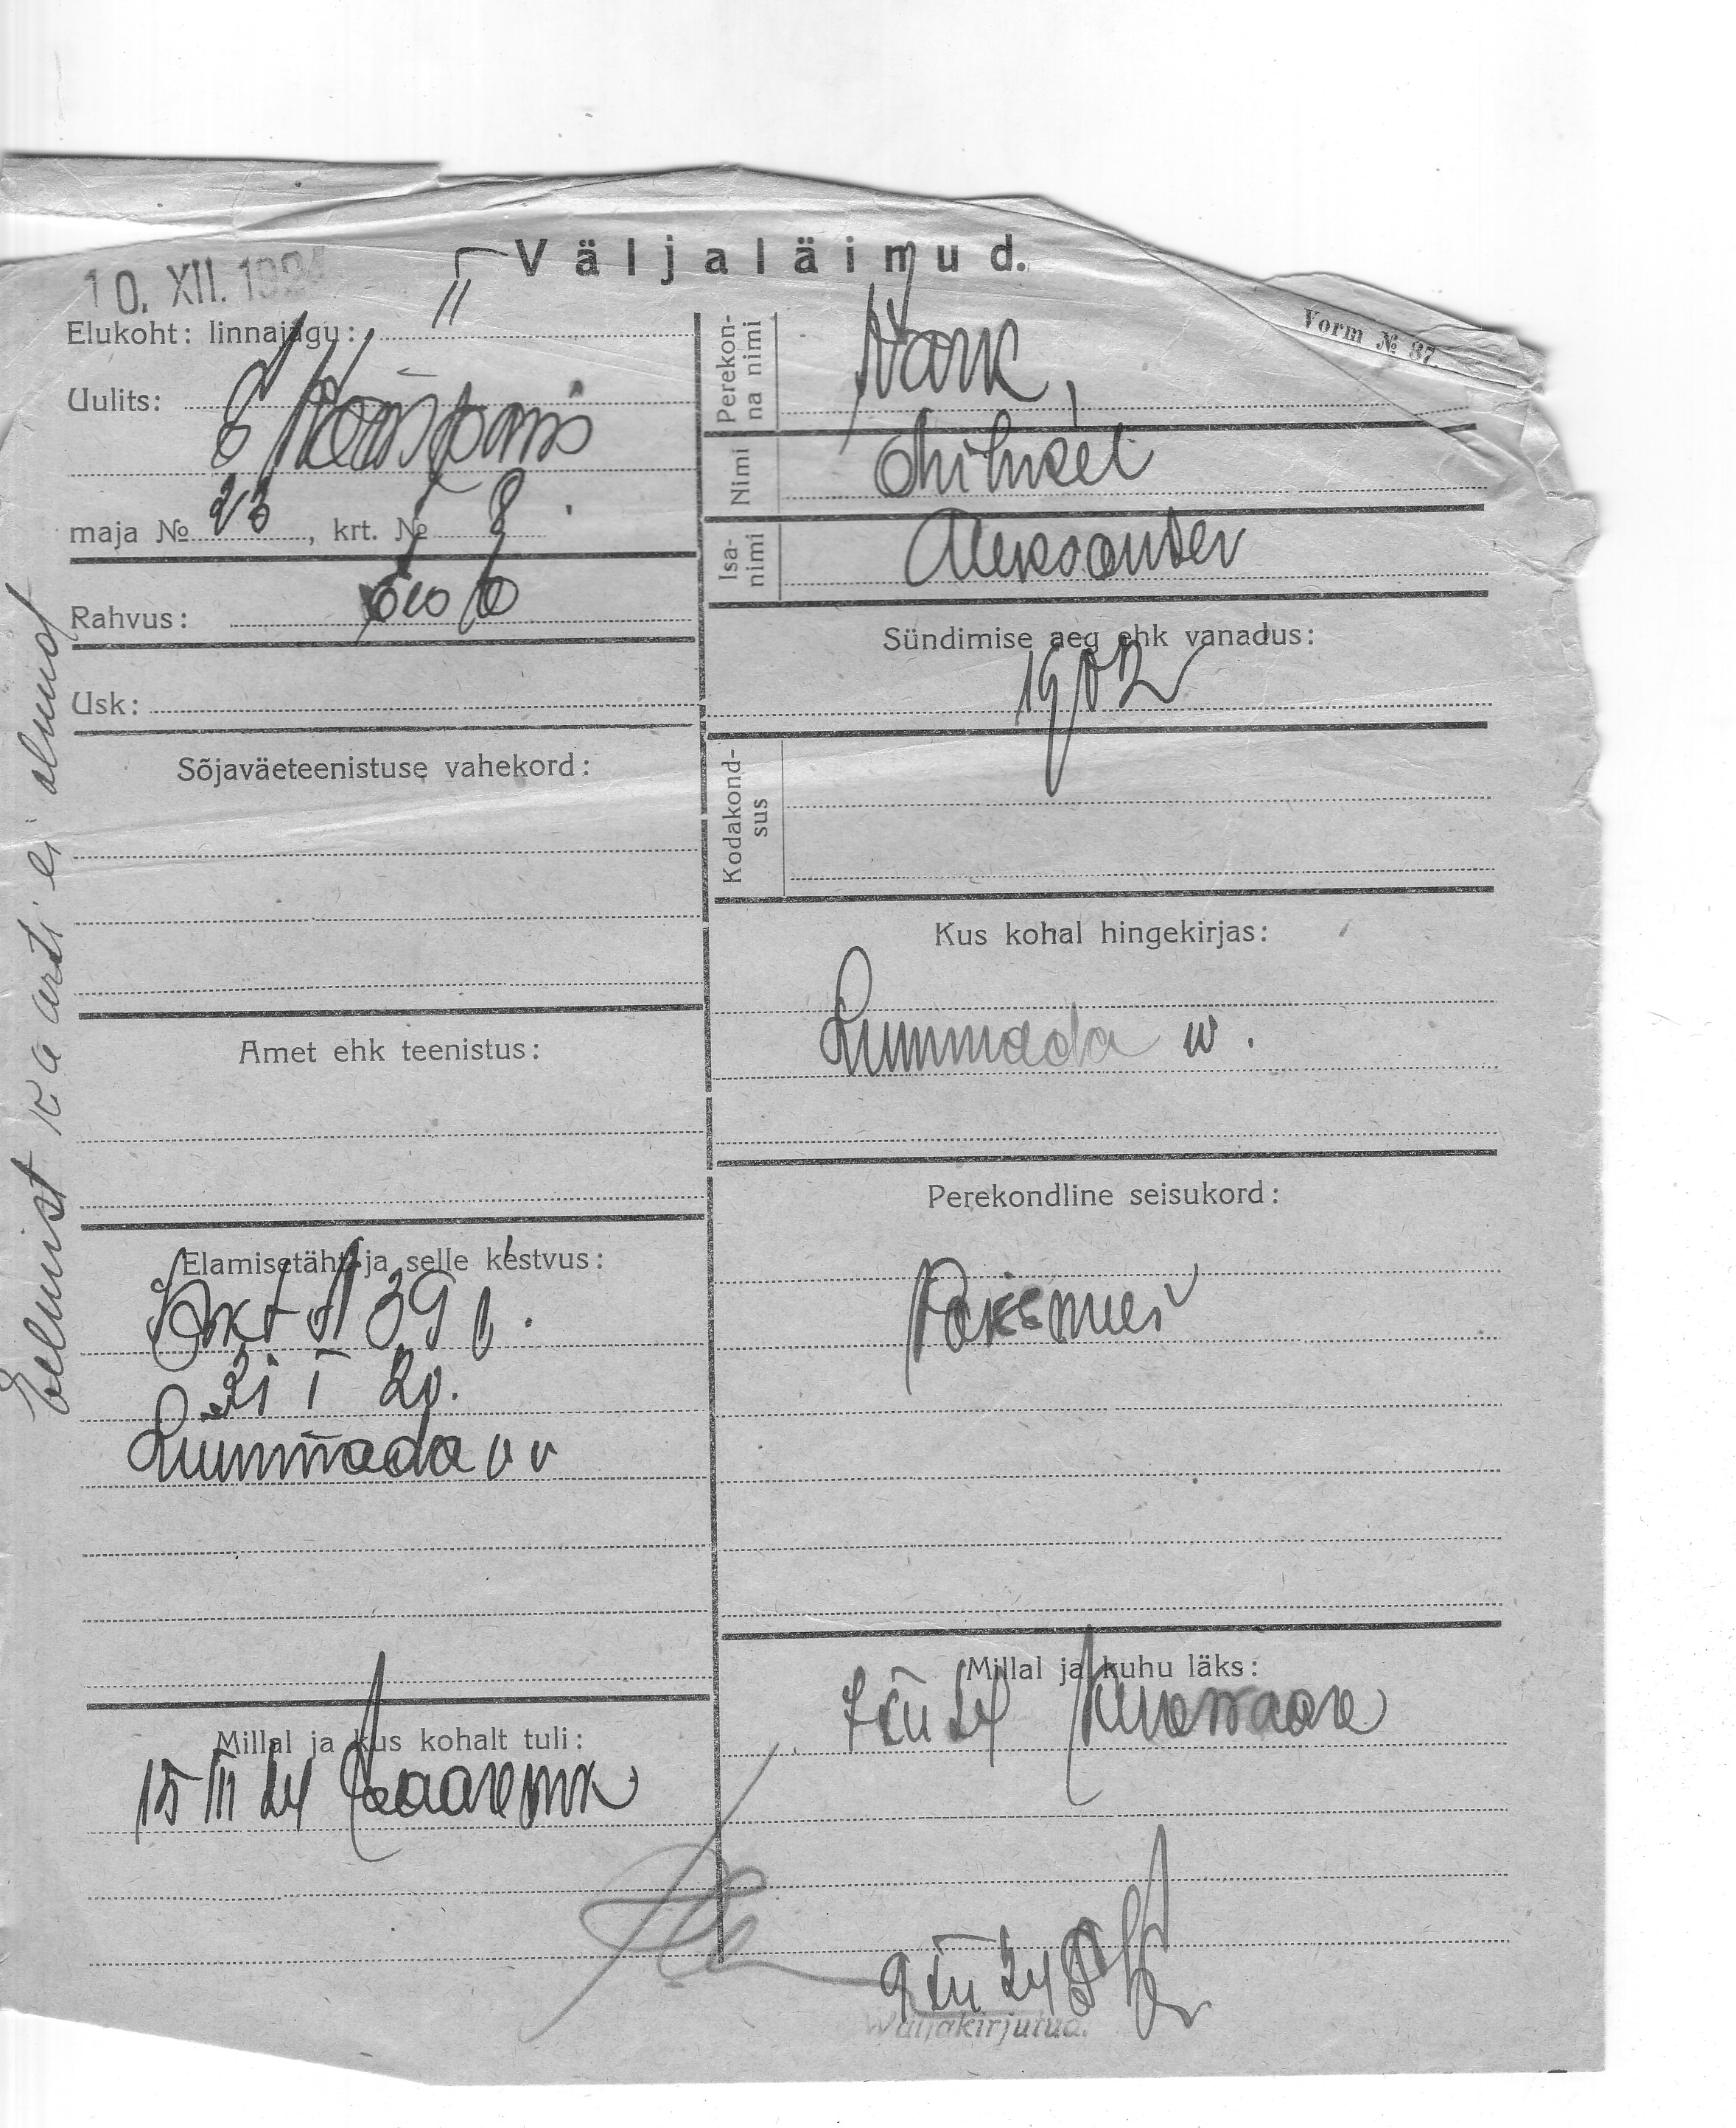 Väljaläinud.
Vorm № 37.
10. XII. 1924
Elukoht: linnajagu:
II
Uulits:
maja № 23, krt. № 8.
Rahvus:
Usk:
Sõjaväeteenistuse vahekord:
Amet ehk teenistus:
Elamisetäht ja selle kestvus:
39
21 I 20.
Lümmada vv
Millal ja kus kohalt tuli:
15 III 24
Perekonna nimi
Nimi
Mihkel
Isa-nimi
Aleksander
Sündimise aeg ehk vanadus:
1902
Kodakondsus
Kus kohal hingekirjas:
Lümmada w.
Perekondline seisukord:
Millal ja kuhu läks:
7 XII 24 Kuresaare
9 XII 24
Wäljakirjutud.
Eelmist kaarti ei olnud